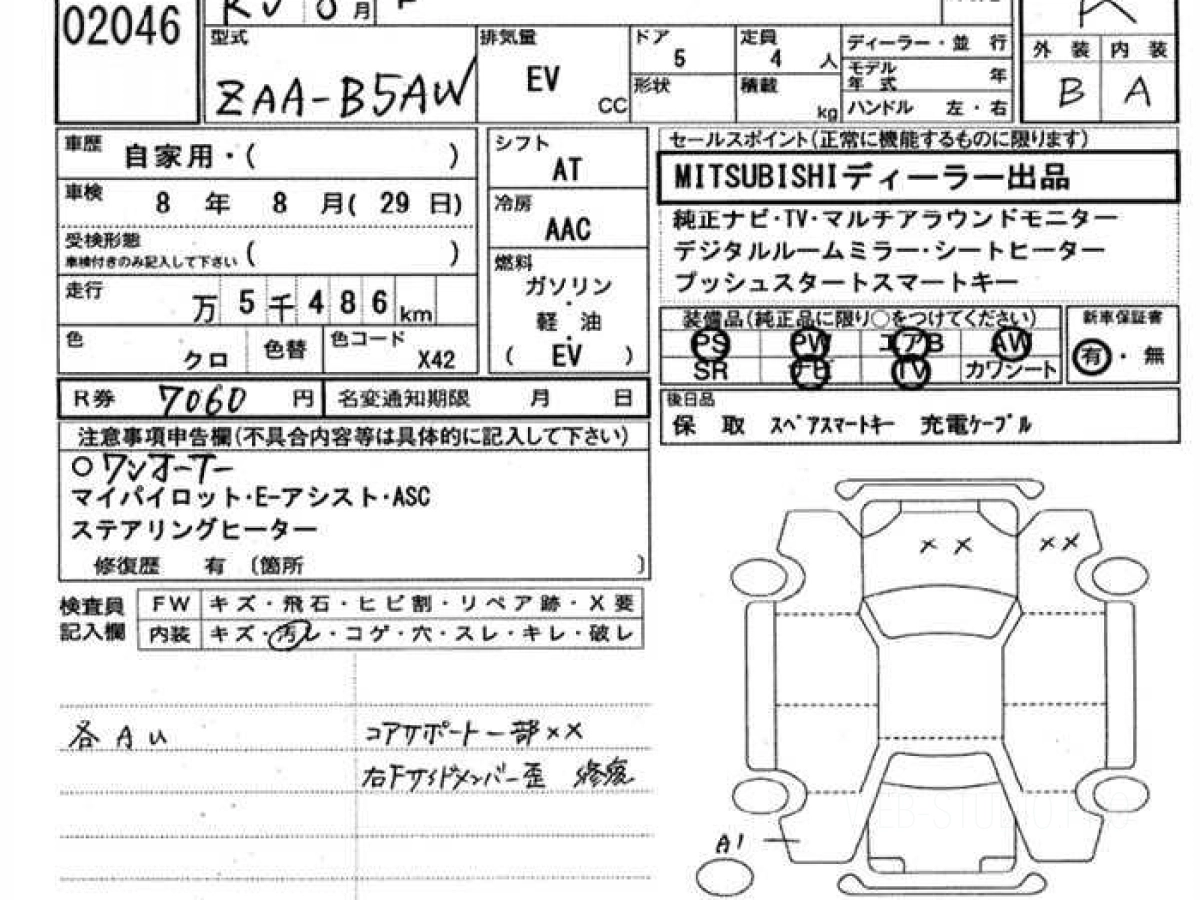 02046
R5 8月 P
型式 ZAA-B5AW
排気量 EV CC
ドア 5
形状
定員 4 人
積載 kg
ディーラー・並 行
モデル年式 年
ハンドル 左・右
R
外 装 内 装
B A
車歴 自家用・( )
車検 8 年 8 月( 29 日)
受検形態 ( )
車検付きのみ記入して下さい
走行 万 5 千 4 8 6 km
色 クロ 色替 色コード X42
シフト AT
冷房 AAC
燃料
ガソリン
・
軽 油
・
( EV )
セールスポイント(正常に機能するものに限ります)
MITSUBISHIディーラー出品
純正ナビ・TV・マルチアラウンドモニター
デジタルルームミラー・シートヒーター
プッシュスタートスマートキー
装備品(純正品に限り○をつけてください)
PS PW エアB AW
SR ナビ TV カワシート
新車保証書
有・無
R券 7060 円 名変通知期限 月 日
後日品
保 取 スペアスマートキー 充電ケーブル
注意事項申告欄(不具合内容等は具体的に記入して下さい)
○ワンオーナー
マイパイロット・E-アシスト・ASC
ステアリングヒーター
修復歴 有 〔箇所 〕
検査員記入欄
FW キズ・飛石・ヒビ割・リペア跡・X要
内装 キズ・汚レ・コゲ・穴・スレ・キレ・破レ
各 A U
コアサポート一部××
右Fサイドメンバー歪 修復
×× ××
A1